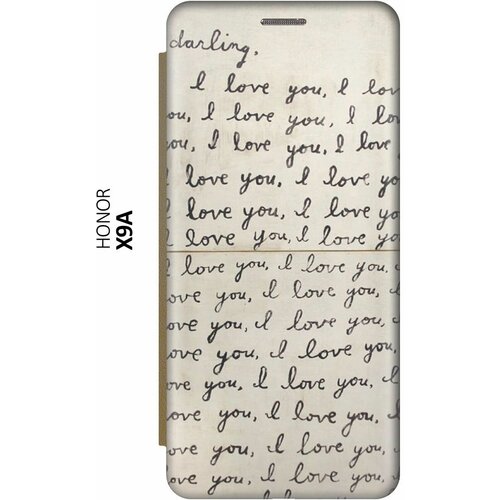 HONOR
X9A
darling,
I love you, I lov
ou, I love you, I lov
ou, I love you, I love
love you, I love yo
love you, I love yo
I love you, I love yo
I love you, I love you,
ove you, I love you,
ove you, I love you,
ove you, I love you,
ove you, I love you, I
love you, I love you,
ove you, I love you,
ove you, I love you,